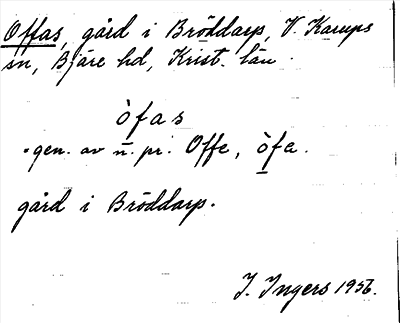 Offas, gård i Bröddarp, V. Karups
sn, Bjäre hd, Krist. län.
òfas
gen. av n. pr. Offe, òfe.
gård i Bröddarp.
I. Ingers 1956.